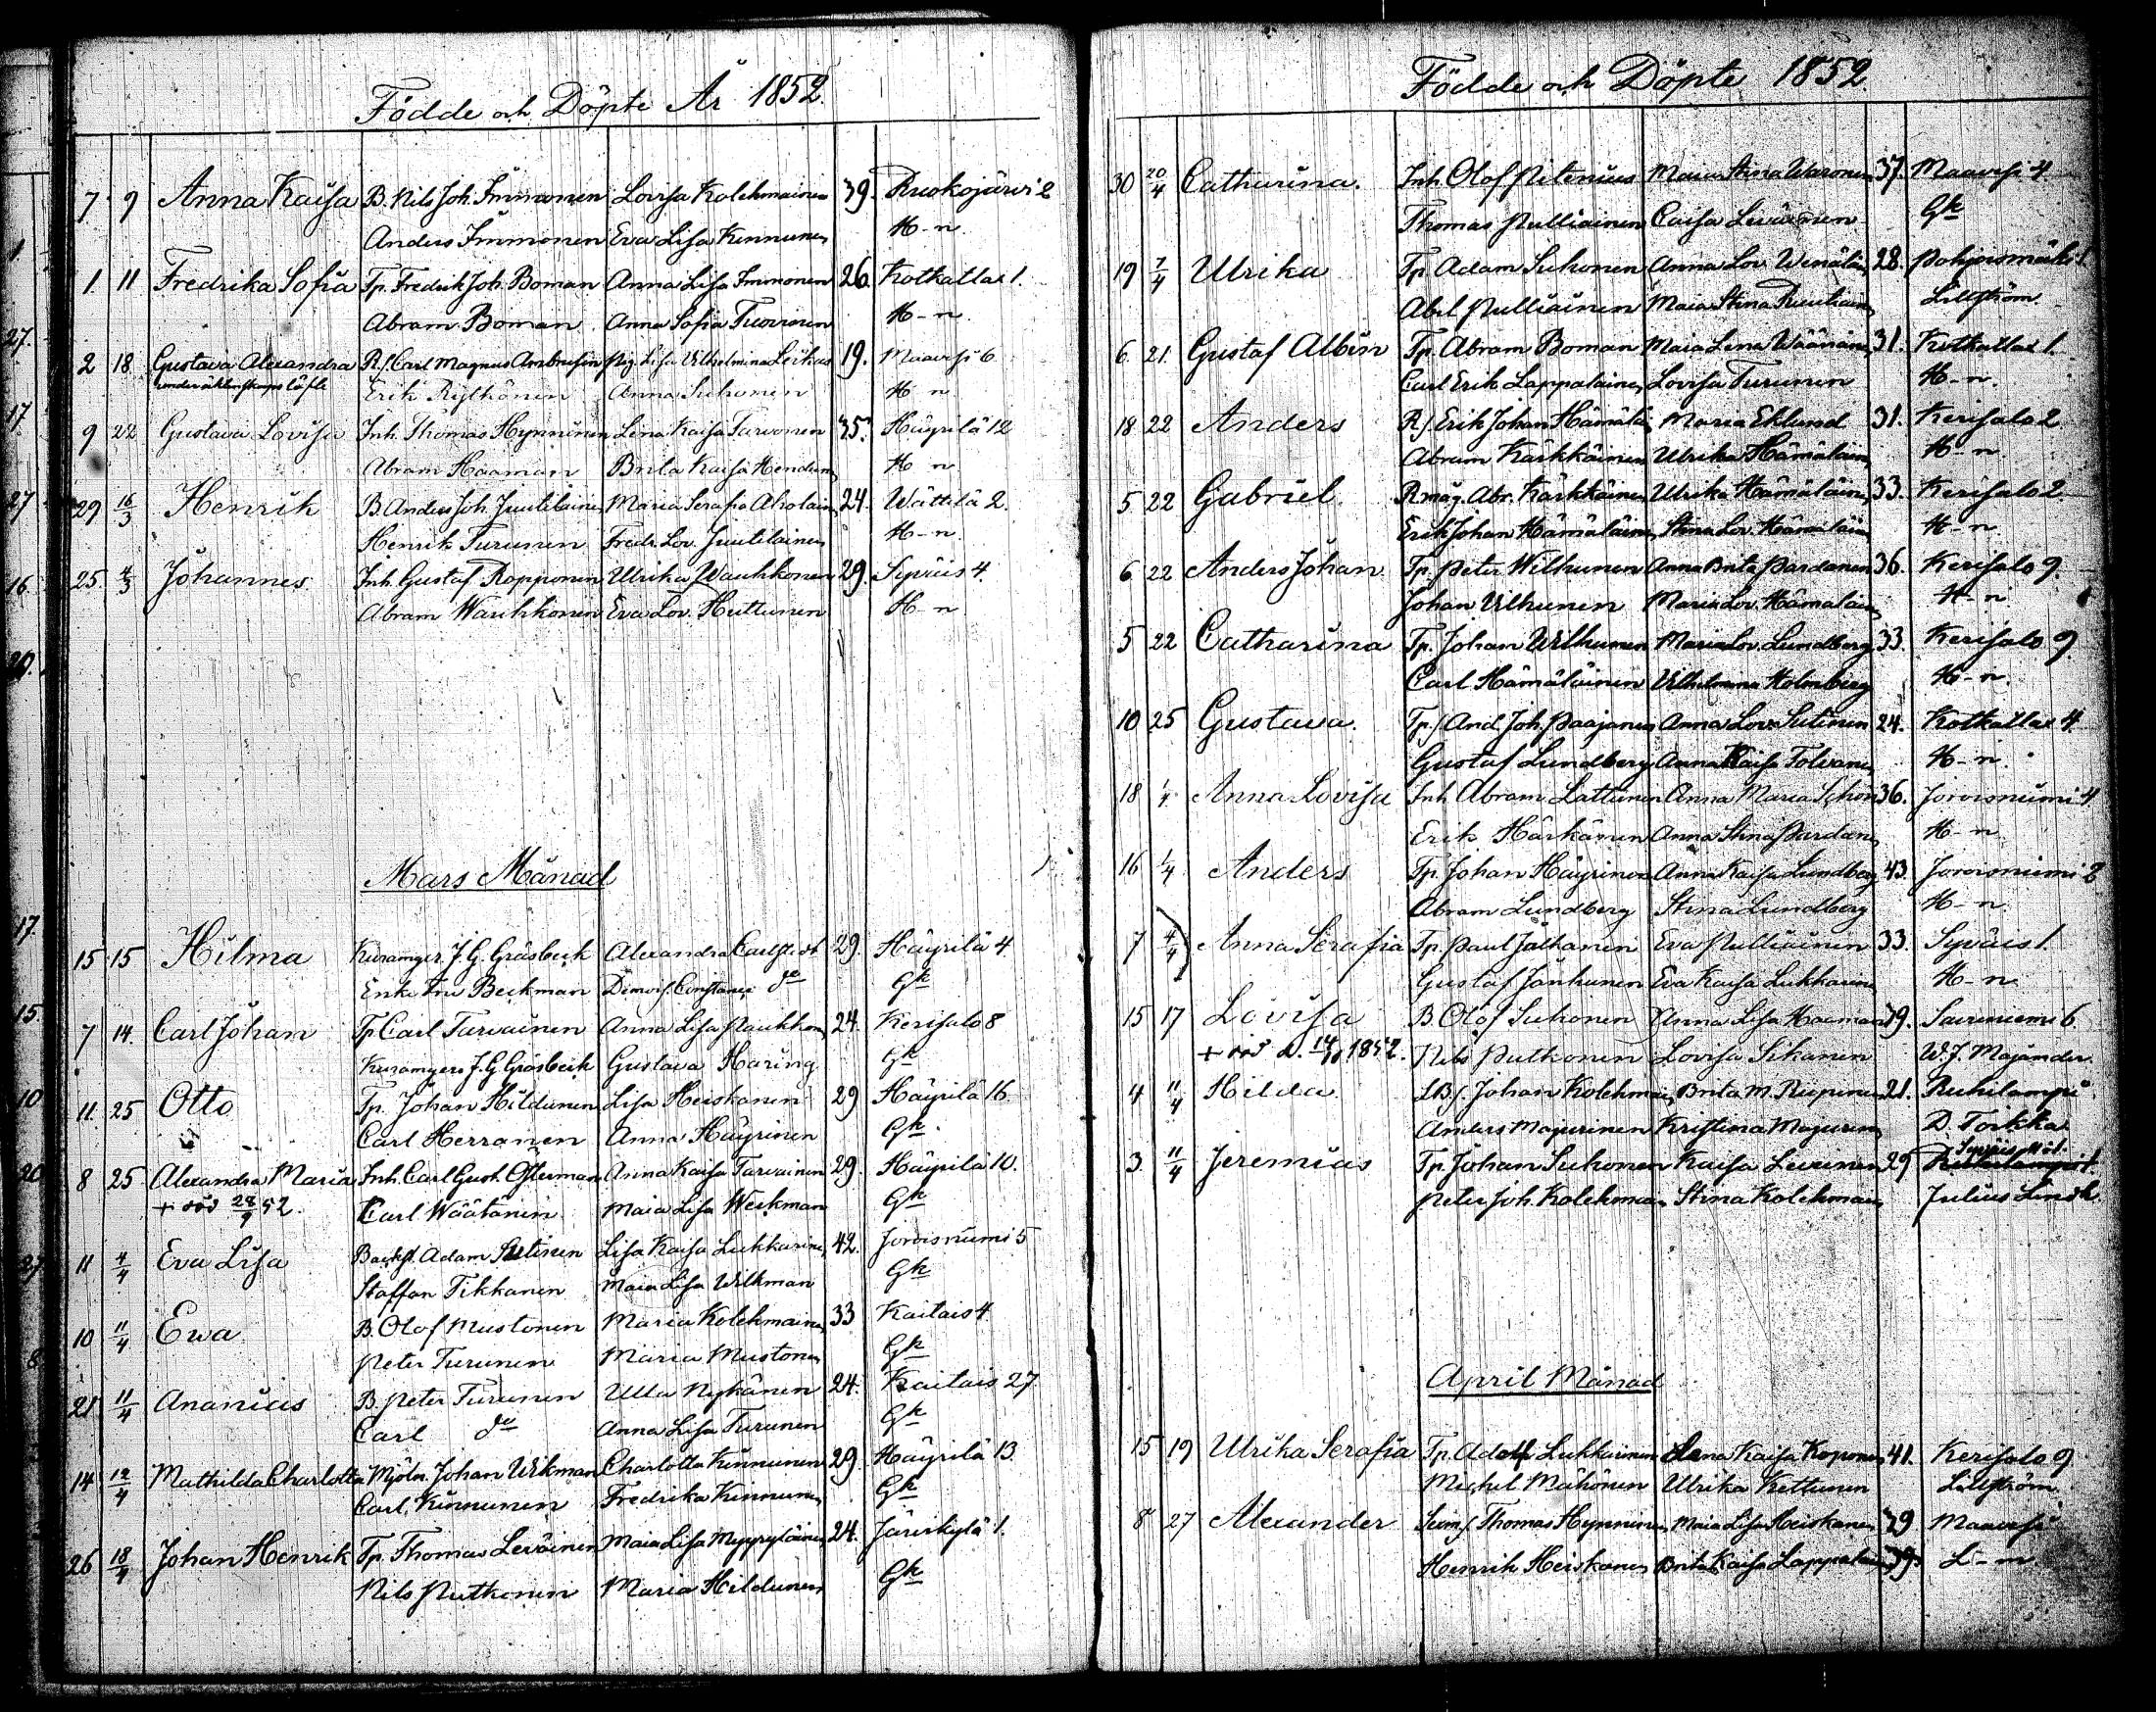 Födde och Döpte År 1852.
7 9 Anna Kaisa B. Nils Joh. Immonen Lovisa Kolehmainen 39. Ruokojärvi 2
Anders Immonen Eva Lisa Kinnunen H-n.
1 11 Fredrika Sofia Tp. Fredrik Joh. Boman Anna Lisa Immonen 26. Kotkatlax 1.
Abram Boman Anna Sofia Tuovinen H-n.
2 18 Gustava Alexandra R/. Carl Magnus Ambrusin Pig. Lisa Vilhelmina Leikas 19. Maavesi 6
Erik Rytkönen Anna Suhonen H n.
9 22 Gustava Lovisa Inh. Thomas Hynninen Lena Kaisa Tarvonen 35. Häyrilä 12
Abram Haaman Brita Kaisa H n
29 16/3 Henrik B. Anders Joh. Juutilainen Maria Serafia Aholain 24. Wättilä 2.
Henrik Turunen Fredr. Lov. Juutilainen H-n.
25. 4/3 Johannes Inh. Gustaf Ropponen Ulrika Wauhkonen 29. Syväis 4.
Abram Wauhkonen Eva Lov. Huttunen H n
Mars Månad
15 15 Hilma J. G. Gråsbeck Alexandra 29. Häyrilä 4
Beckman do Gk
7 14. Carl Johan Tp Carl Tarvainen Anna Lisa Paukkon 24. Kerisalo 8
J. G. Gråsbeck Gustava Häring Gk
11. 25 Otto Tp. Johan Hildunen Lisa Heiskanen 29 Häyrilä 16.
Carl Herranen Anna Häyrinen Gk.
8 25 Alexandra Maria Inh. Carl Gust. Österman Anna Kaisa Tarvainen 29. Häyrilä 10.
+ död 28/9 52. Carl Wäätänen Maia Lisa Weckman Gk
11 4/4 Eva Lisa Adam Sutinen Lisa Kaisa Lukkarinen 42. Joroisniemi 5
Staffan Tikkanen Maia Lisa Wilkman Gk
10 11/4 Ewa B. Olof Mustonen Maria Kolehmainen 33 Kaitais 4
Peter Turunen Maria Mustonen Gk
21 11/4 Ananias B. Peter Turunen Ulla Nykänen 24. Kaitais 27
Carl do Anna Lisa Turunen Gk
14 12/4 Mathilda Charlotta Mjöln. Johan Wikman Charlotta Kinnunen 29. Häyrilä 13.
Carl Kinnunen Fredrika Kinnunen Gk
26 18/4 Johan Henrik Tp. Thomas Leväinen Maia Lisa Myyryläinen 24. Järvikylä 1.
Nils Putkonen Maria Hildunen Gk
Födde och Döpte 1852.
30 20/4 Catharina. Inh. Olof Pitenius Maia Stina Waronen 37. Maavesi 4
Thomas Pulliainen Caisa Leväinen Gk
19 7/4 Ulrika Tp Adam Suhonen Anna Lov. Wenäläin 28. Pohjoismäki 1.
Abel Pulliainen Maia Stina Lillström
6. 21. Gustaf Albin Tp. Abram Boman Maia Lena Wäänänen 31. Kotkatlax 1.
Carl Erik Lappalainen Lovisa Turunen H-n.
18 22 Anders R/. Erik Johan Hämäläi Maria Eklund 31. Kerisalo 2
Abram Kärkkäinen Ulrika Hämäläinen H-n.
5 22 Gabriel Rmåg. Abr. Kärkkäinen Ulrika Hämäläinen 33. Kerisalo 2.
Erik Johan Hämäläinen Stina Lov. Hämäläin H-n
6. 22 Anders Johan Tp. Peter Wilhunen Anna Brita Pardanen 36. Kerisalo 9.
Johan Vilhunen Maria Lov. Hämäläin H-n
5 22 Catharina Tp. Johan Wilhunen Maria Lov. Lundberg 33. Kerisalo 9.
Carl Hämäläinen Vilhelmina Holmberg H-n.
10 25 Gustava. Tp./ And. Joh. Paajanen Anna Lovisa Sutinen 24. Kotkatlax 4.
Gustaf Lundberg Anna Kaisa Tolvanen H-n.
18 1/4 Anna Lovisa Inh. Abram Lattunen Anna Maria 36. Joroisniemi 4
Erik Härkänen Anna Stina Pardan H-n
16 1/4 Anders Tp. Johan Häyrinen Anna Kaisa Lundberg 43. Joroisniemi 2
Abram Lundberg Stina Lundberg H-n.
7 4/4 Anna Serafia Tp. Paul Jälkanen Eva Pulliainen 33. Syväis 1.
Gustaf Jänhunen Eva Kaisa Lukkarin H-n.
15 17 Lovisa B. Olof Suhonen Anna Lisa Haaman 39. Savuniemi 6.
+ död d. 1852. Nils Putkonen Lovisa Sikanen W. J. Majander.
4 11/4 Hilda Johan Kolehmai Brita M. Ruponen 21. Ruhilampi
Anders Majurinen Kristina Majurin D. Toikka
3. 11/4 Jeremias Tp. Johan Suhonen Kaisa Leväinen 29
Peter Joh. Kolehmai Stina Kolehmai Julius
April Månad
15 19 Ulrika Serafia Tp. Adolf Lukkarinen Lena Kaisa Koponen 41. Kerisalo 9
Michel Mähönen Ulrika Kettunen Lillström.
8 27 Alexander Thomas Hynninen Maia Lisa Heiskanen 39 Maavesi
Henrik Heiskanen Brita Kaisa Lappalain 39. L-m